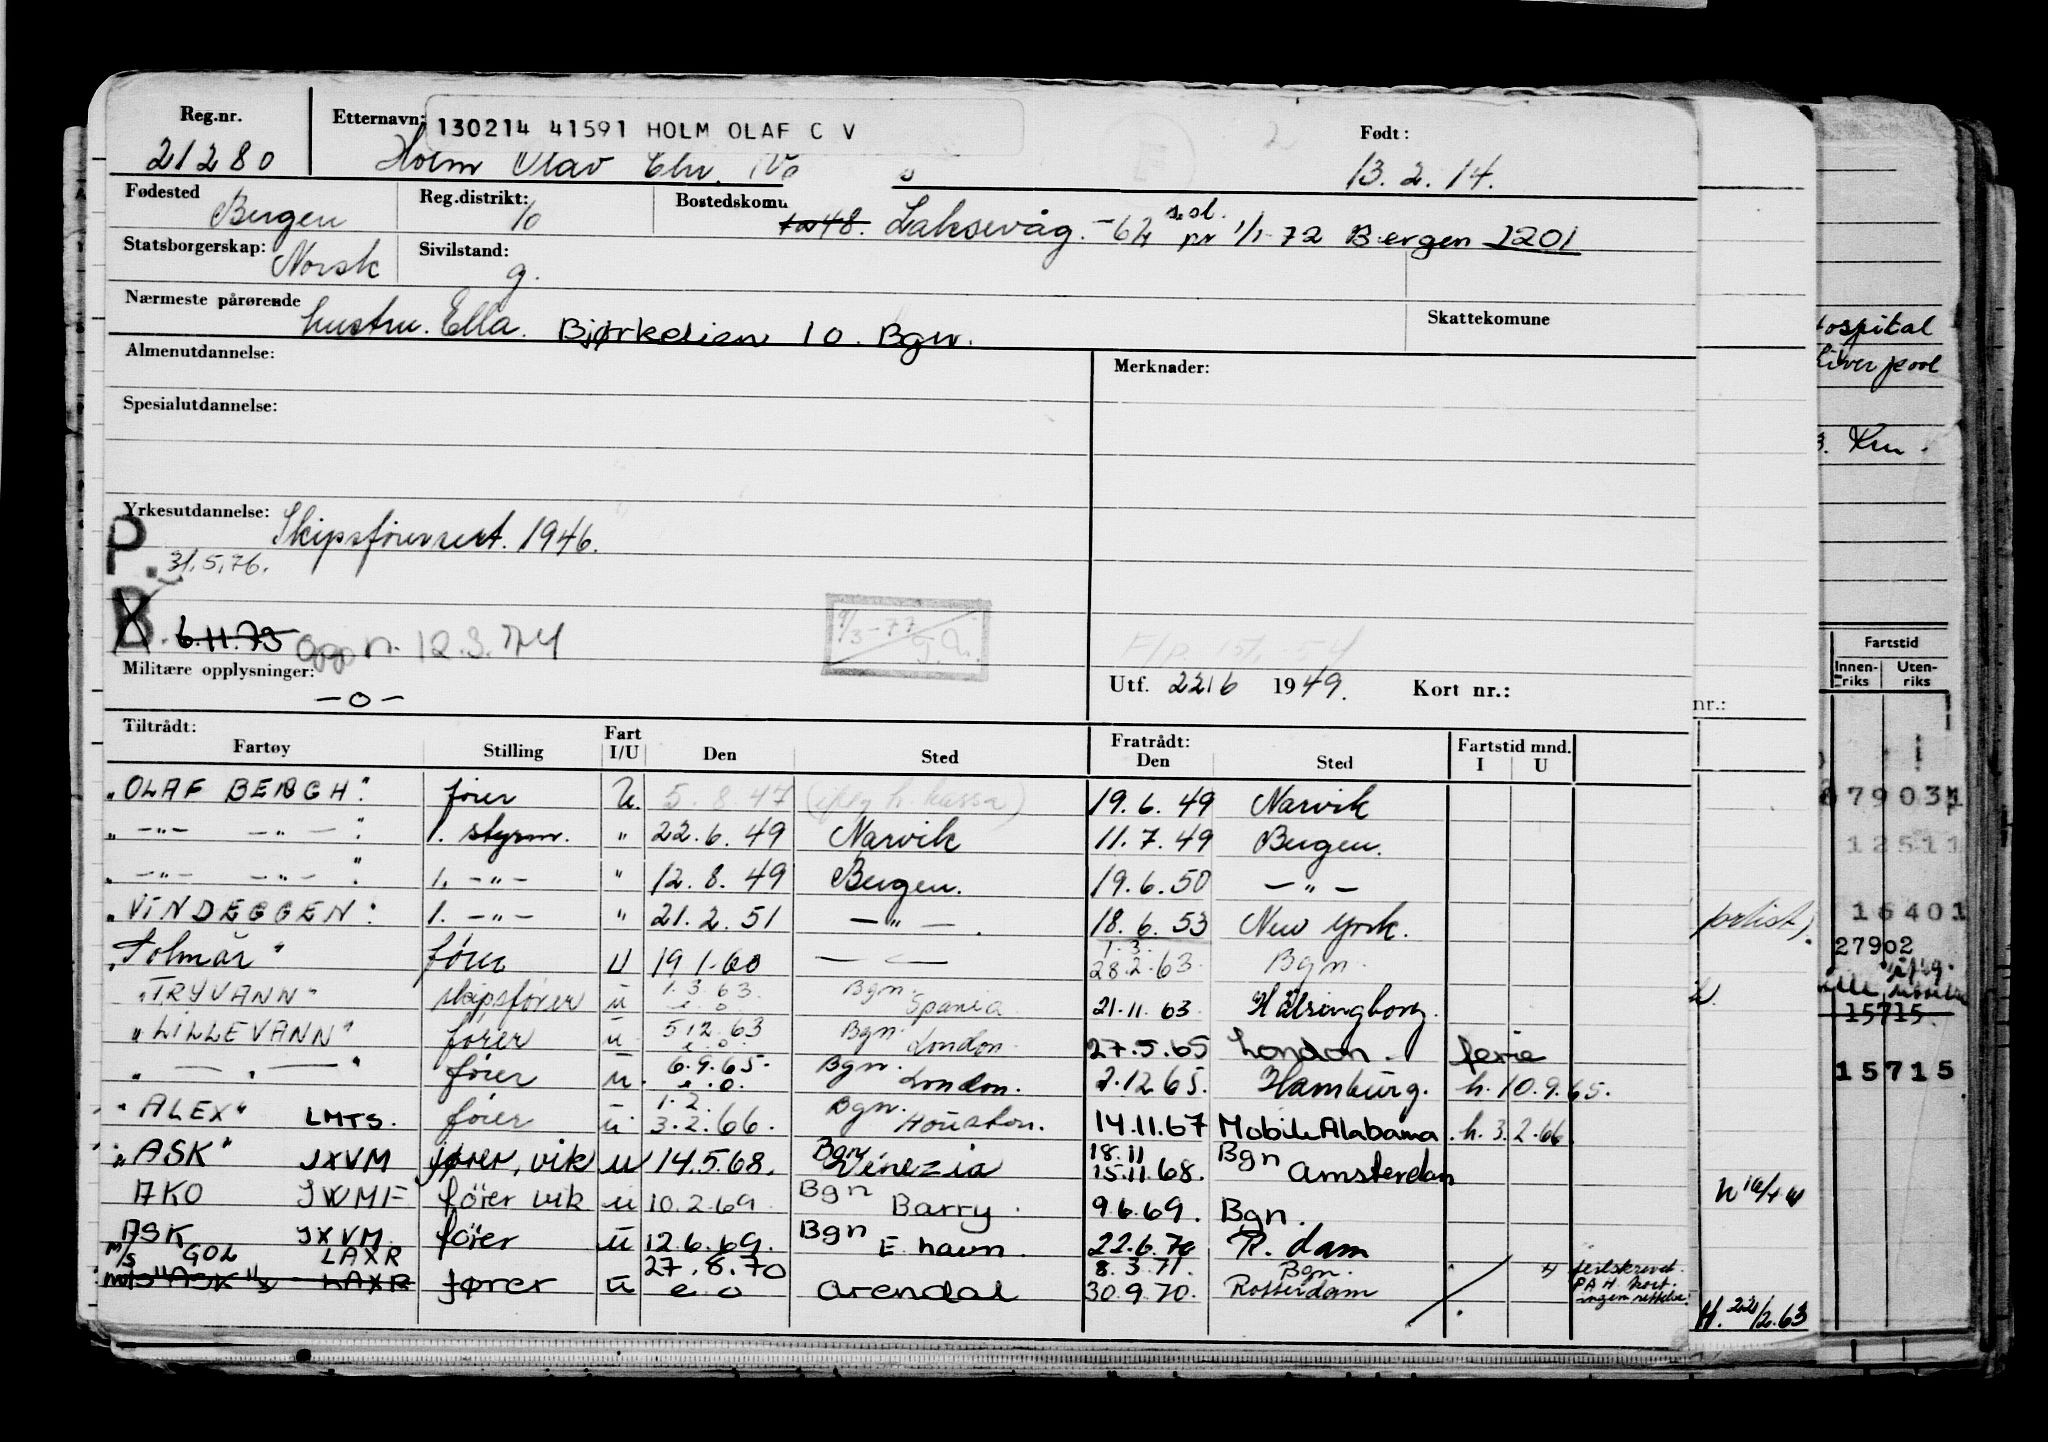 Reg.nr. Etternavn: 130214 41591 HOLM OLAF C V Født:
21280 Holm Olav Chr. 13.2.14.
Fødested Bergen Reg.distrikt: 10 Bostedskomu 48. Laksevåg. -64 s.sl. pr 1/1-72 Bergen 1201
Statsborgerskap: Norsk Sivilstand: g.
Nærmeste pårørende hustru. Ella. Bjørkelien 10. Bgn. Skattekomune
Almenutdannelse: Merknader:
Spesialutdannelse:
Yrkesutdannelse: Skipsførersert. 1946.
P. 31.5.76.
B. 6.11.73 Oppn. 12.3.74
9/3-77
Militære opplysninger: -o-
Utf. 22/6 1949. Kort nr.:
Tiltrådt: Fratrådt: Fartstid mnd.
Fartøy Stilling Fart I/U Den Sted Den Sted I U
"OLAF BERGH" fører U. 5.8.47 19.6.49 Narvik
" -"- -"- " 1. styrm. " 22.6.49 Narvik 11.7.49 Bergen.
" -"- -"- " 1. -"- " 12.8.49 Bergen. 19.6.50 -"-
"VINDEGGEN" 1. -"- " 21.2.51 -"- 18.6.53 New York.
"Solmar" fører U 19.1.60 1.3. 28.2.63 Bgn.
"TRYVANN" skipsfører u 1.3.63. e.o Bgn. Spania 21.11.63 Hälsingborg.
"LILLEVANN" fører u 5.12.63 e.o. Bgn. London. 27.5.65 London. ferie
" — " — " fører u. 6.9.65. e.o. Bgn. London. 2.12.65. Hamburg. h. 10.9.65.
"ALEX" LMTS. fører u 1.2. 3.2.66. Bgn. Houston. 14.11.67 Mobile Alabama. h. 3.2.66.
"ASK" JXVM fører, vik u 14.5.68. Bgn Venezia 18.11 15.11.68. Bgn Amsterdam
AKO JWMF fører vik u 10.2.69. Bgn Barry. 9.6.69. Bgn.
ASK JXVM fører u 12.6.69. Bgn E. havn. 22.6.70 R. dam
M/S GOL LAXR 27.8.70 8.3.71. Bgn. feilskrevet.
M/S "ASK" LAXR fører u e.o Arendal 30.9.70. Rotterdam PAH kort. ingen rettelse.
Hospital
Liverpool
Fartstid
Innen-riks Uten-riks
nr.:
79031
12511
16401
27902
15715
15715
H. 22/2.63